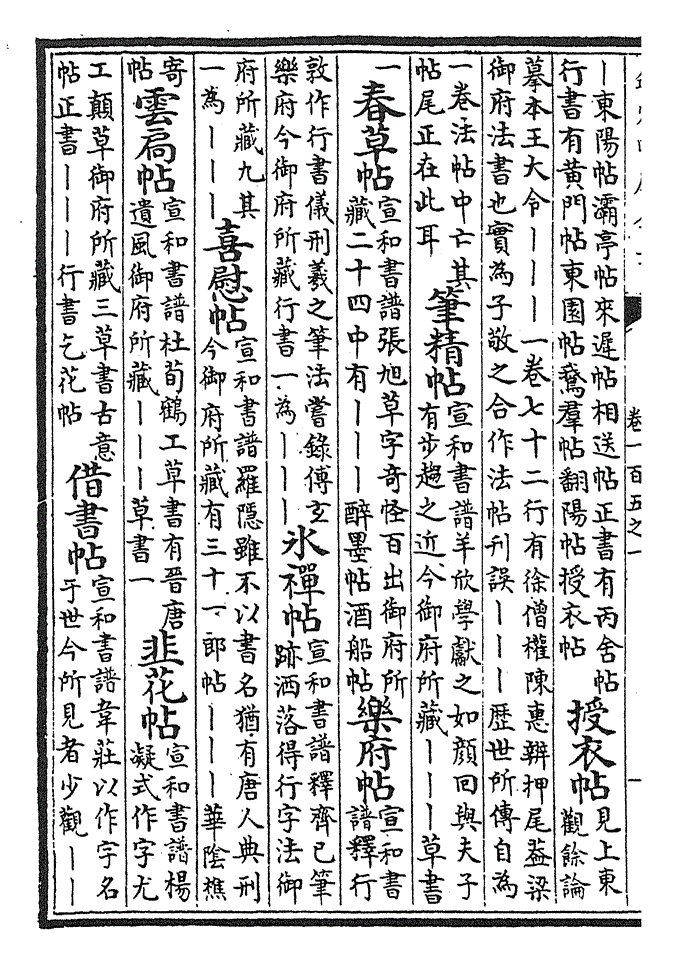 丨東陽帖灞亭帖來遲帖相送帖正書有丙舍帖
行書有黄門帖東園帖鵞羣帖翻陽帖授衣帖
授衣帖
見上東
觀餘論
摹本王大令丨丨丨一卷七十二行有徐僧權陳惠辨押尾葢梁
御府法書也實為子敬之合作法帖刊誤丨丨丨歴世所傳自為
一卷法帖中亡其
帖尾正在此耳
筆精帖
宣和書譜羊欣學獻之如顔回與夫子
有步趨之近今御府所藏丨丨丨草書
一
春草帖
宣和書譜張旭草字奇怪百出御府所
藏二十四中有丨丨丨醉墨帖酒船帖
樂府帖
宣和書
譜釋行
敦作行書儀刑羲之筆法嘗錄傅玄
樂府今御府所藏行書一為丨丨丨
氷禪帖
宣和書譜釋齊己筆
跡洒落得行字法御
府所藏九其
一為丨丨丨
喜慰帖
宣和書譜羅隱雖不以書名猶有唐人典刑
今御府所藏有三十一郎帖丨丨丨華陰樵
寄
帖
雲扃帖
宣和書譜杜荀鶴工草書有晉唐
遺風御府所藏丨丨丨草書一
韭花帖
宣和書譜楊
凝式作字尤
工顛草御府所藏三草書古意
帖正書丨丨丨行書乞花帖
借書帖
宣和書譜韋莊以作字名
于世今所見者少觀丨丨
卷一百五之一
一